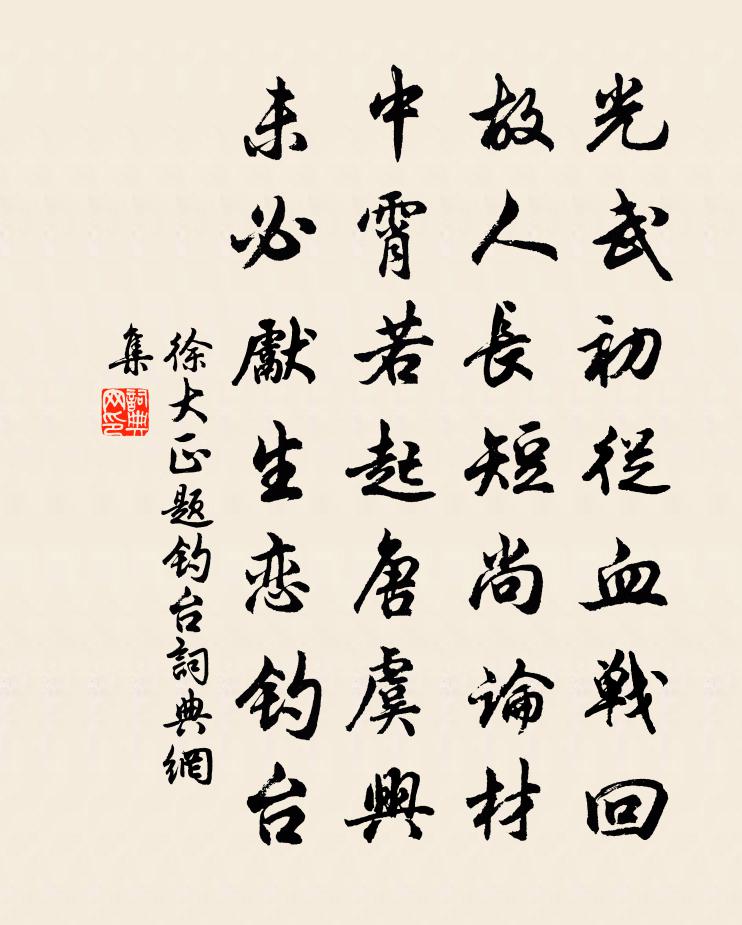 光武初從血戰回
故人長短尚論材
中霄若起唐虞興
未必獻生恋钓台
徐大正题钓台詞典網
集
詞典网印